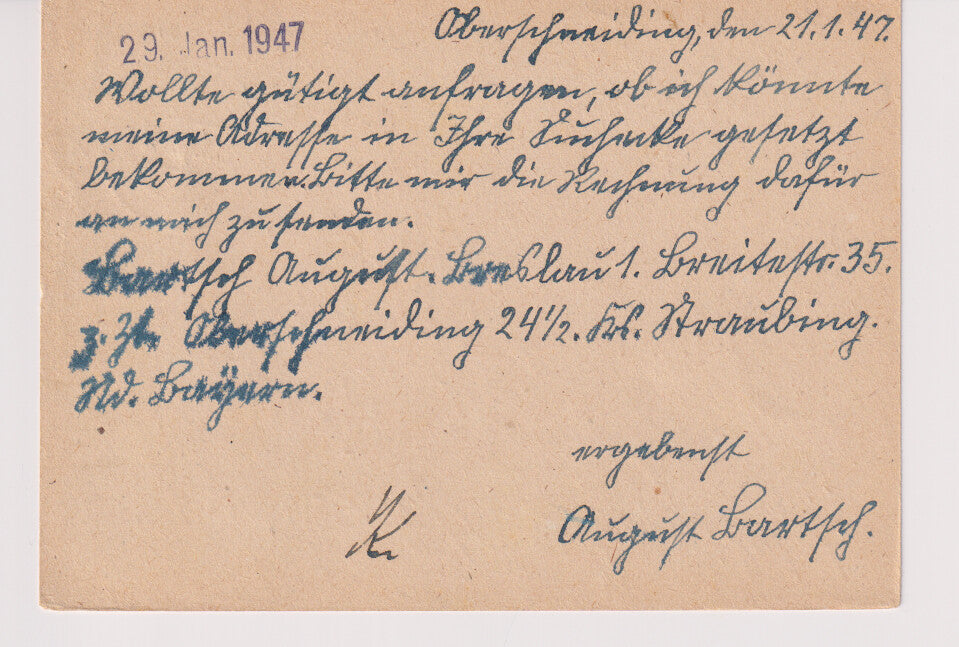 29. Jan. 1947
Oberschneiding, den 21.1.47.
Wollte gütigt anfragen, ob ich könnte
meine Adresse in Ihre Suchecke gesetzt
bekommen. Bitte mir die Rechnung dafür
an mich zu senden.
Bartsch August. Breslau 1. Breitestr. 35.
z. Zt. Oberschneiding 24 1/2. Krs. Straubing.
Nd. Bayern.
ergebenst
August Bartsch.